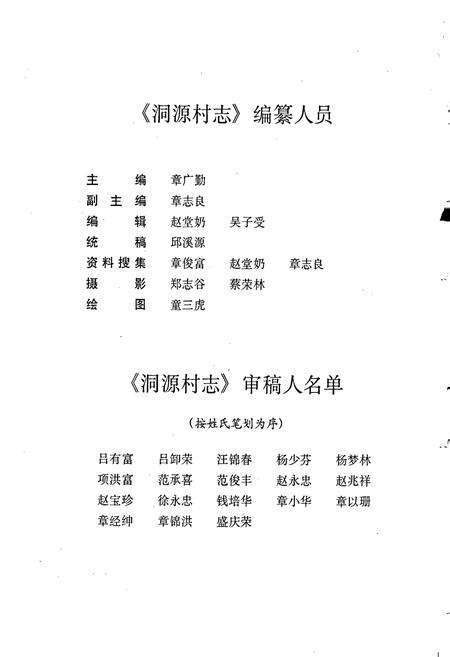 《洞源村志》编纂人员
主编 章广勤
副主编 章志良
编辑 赵堂奶 吴子受
统稿 邱溪源
资料搜集 章俊富 赵堂奶 章志良
摄影 郑志谷 蔡荣林
绘图 童三虎
《洞源村志》审稿人名单
(按姓氏笔划为序)
吕有富 吕卸荣 汪锦春 杨少芬 杨梦林
项洪富 范承喜 范俊丰 赵永忠 赵兆祥
赵宝珍 徐永忠 钱培华 章小华 章以珊
章经绅 章锦洪 盛庆荣